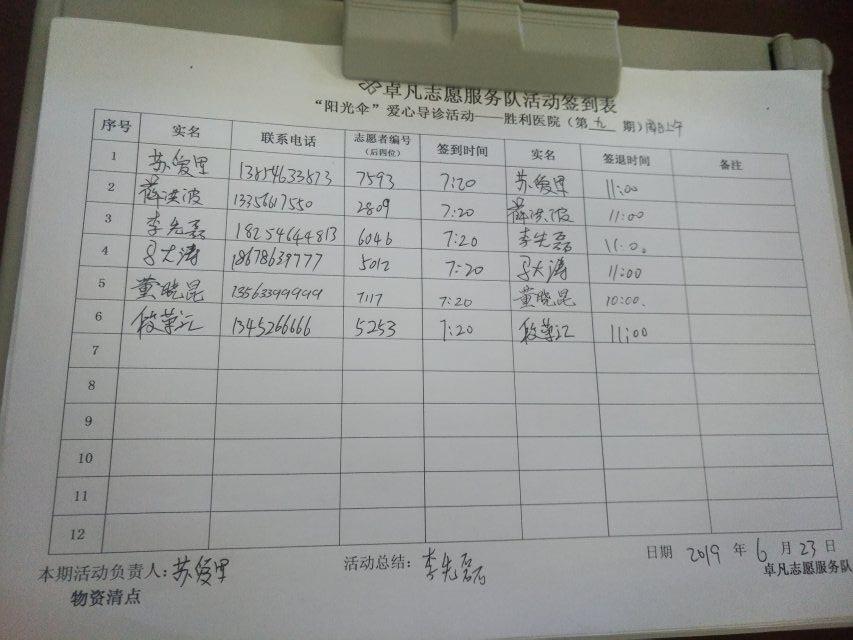 卓凡志愿服务队活动签到表
“阳光伞”爱心导诊活动——胜利医院(第九期)周日上午
序号 实名 联系电话 志愿者编号(后四位) 签到时间 实名 签退时间 备注
1 苏爱里 13854633873 7593 7:20 苏爱里 11:00
2 蒋洪波 13356617550 2809 7:20 蒋洪波 11:00
3 李先磊 18254644813 6046 7:20 李先磊 11:00
4 大涛 18678639777 5012 7:20 大涛 11:00
5 黄晓昆 13563399999 7117 7:20 黄晓昆 10:00.
6 1345266666 5253 7:20 11:00
7
8
9
10
11
12
日期 2019 年 6 月 23 日
本期活动负责人:苏爱里 活动总结:李先磊
卓凡志愿服务队
物资清点